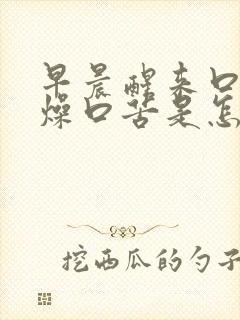 早晨醒来口
燥口苦是怎
挖西瓜的勺子